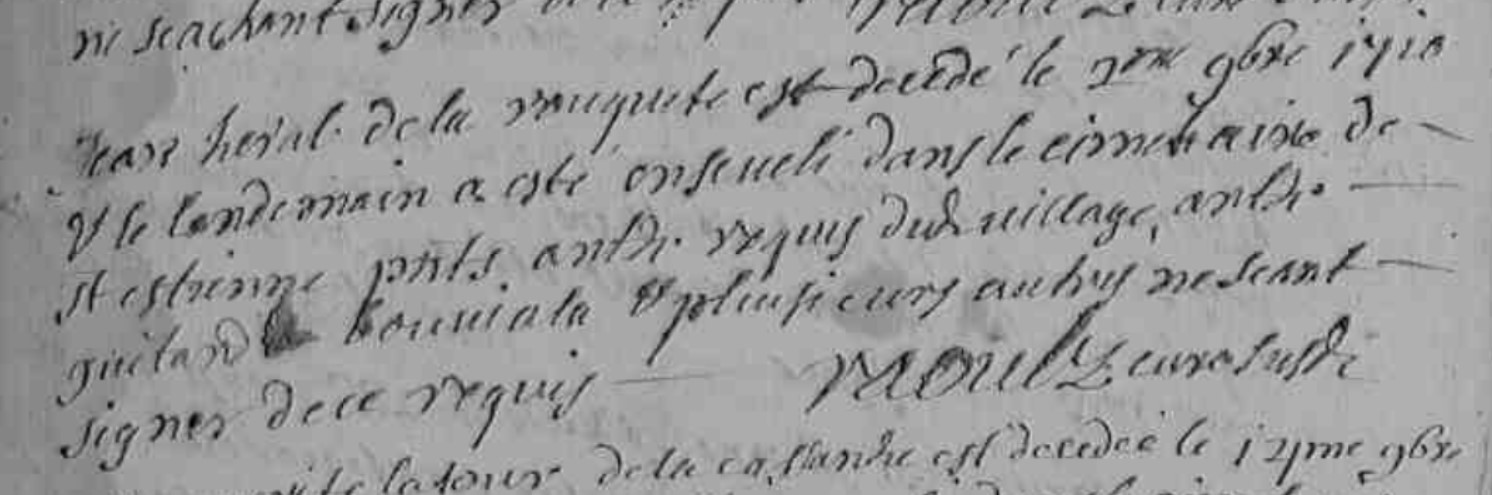 ne scachant signer de ce
Jean heral de la rouquete est decedé le 2me 9bre 1710
& le landemain a esté enseveli dans le cimetaire de
st estienne pnts anthe requis dud village, anthe
guitard bouviala & plusieurs autres ne scant
signer de ce requis Raoulz curé susd
latour de la est decedée le 12me 9bre